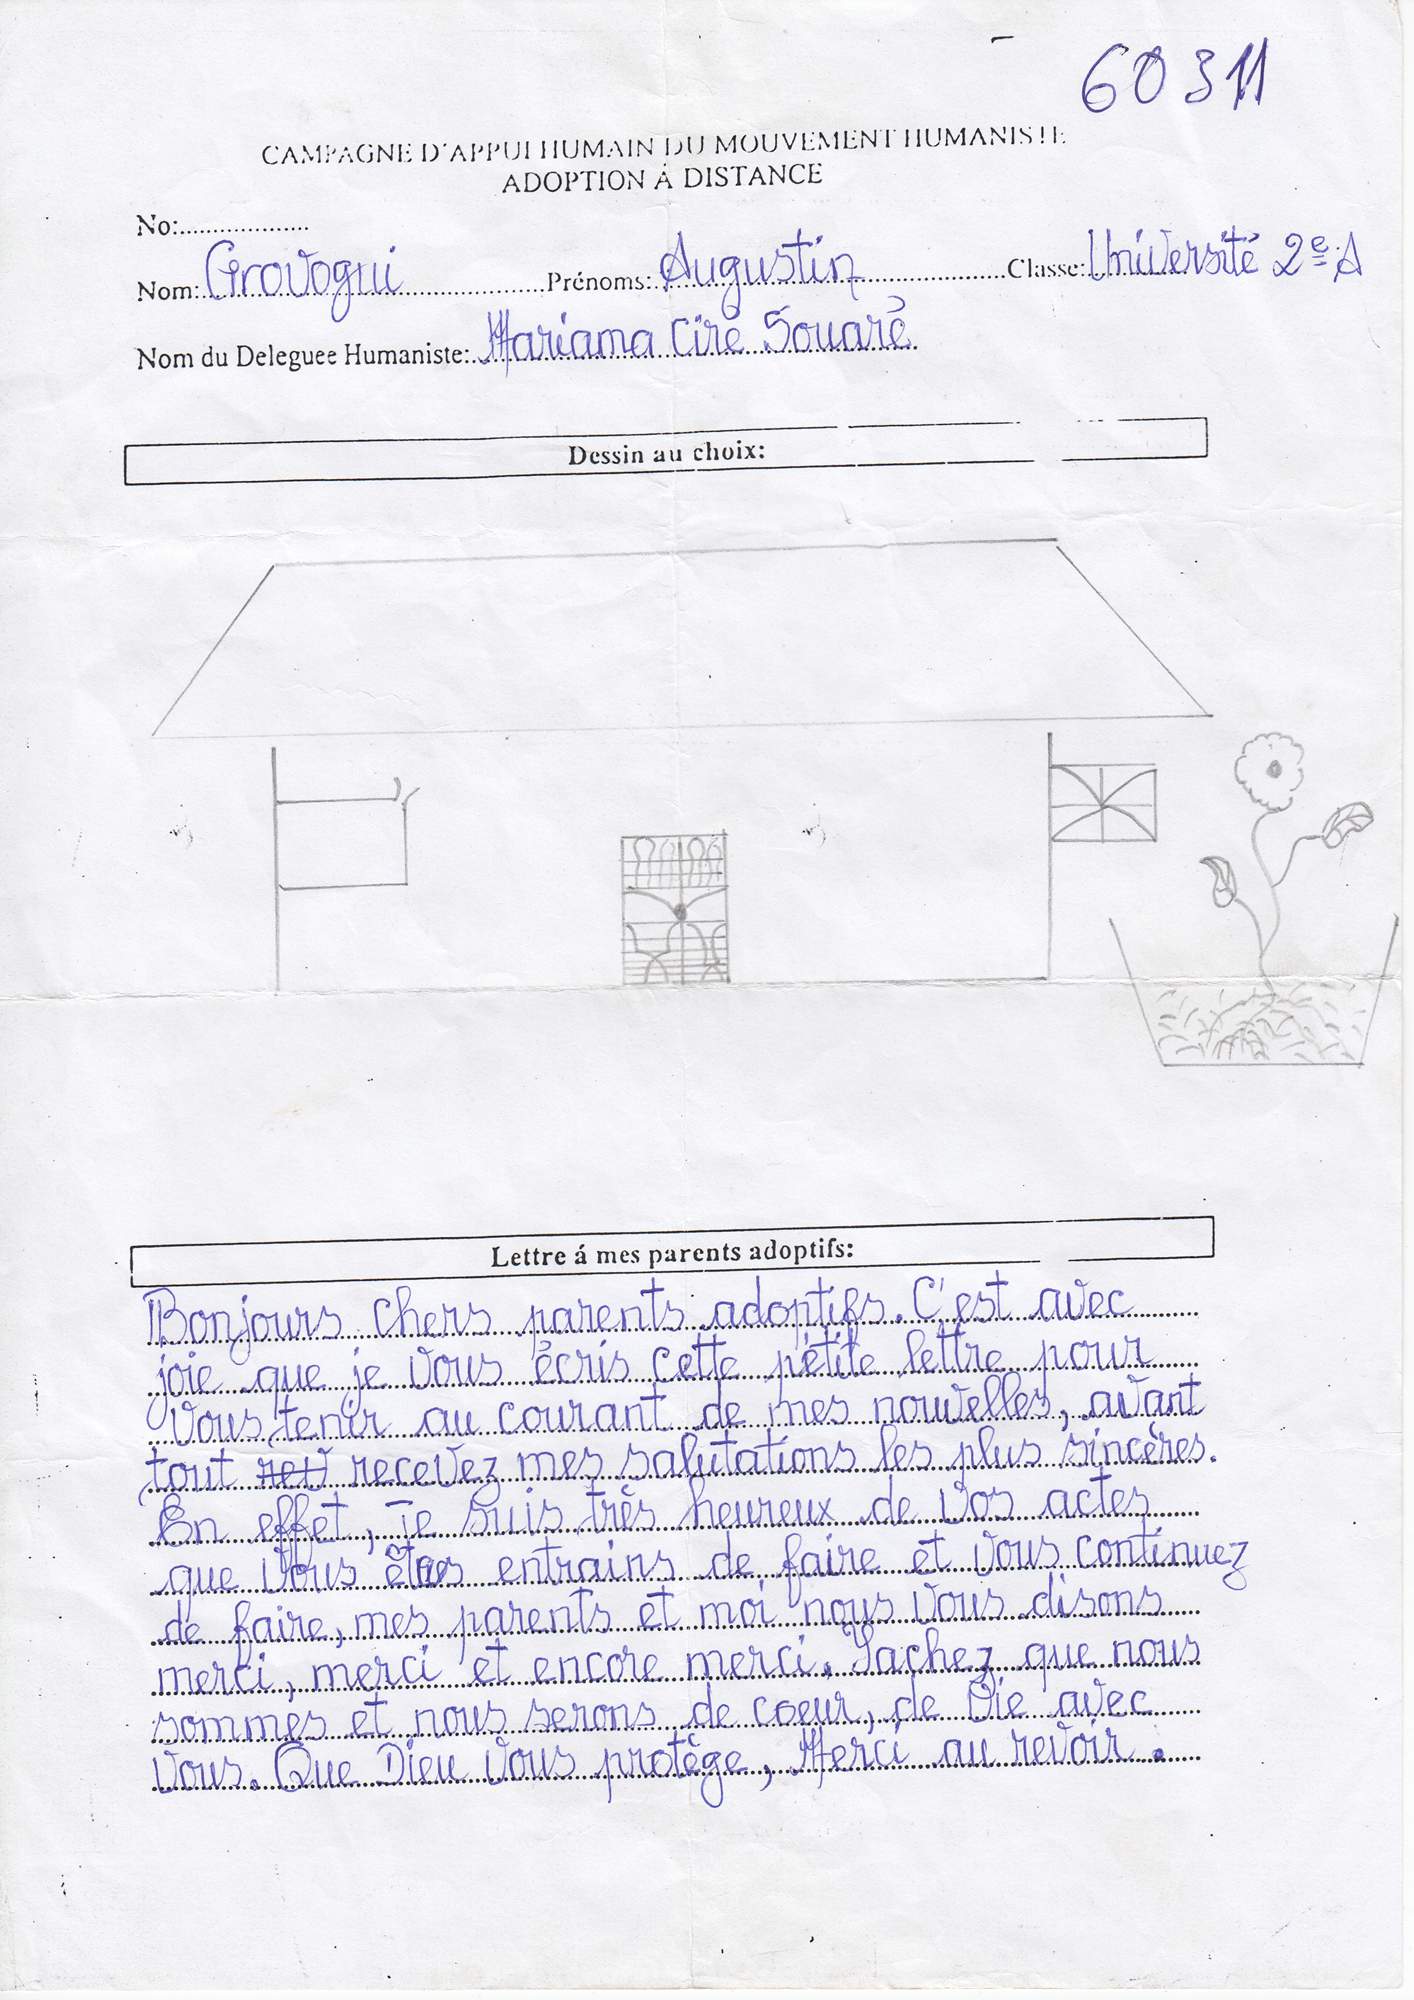 60311
CAMPAGNE D'APPUI HUMAIN DU MOUVEMENT HUMANISTE
ADOPTION Á DISTANCE
No:...................
Nom: Grovogui Prénoms: Augustin Classe: Université 2e A
Nom du Deleguee Humaniste: Mariama Ciré Souaré
Dessin au choix:
Lettre á mes parents adoptifs:
Bonjours chers parents adoptifs. C'est avec
joie que je vous écris cette pétite lettre pour
vous tenir au courant de mes nouvelles, avant
tout recevez mes salutations les plus sincères.
En effet, je suis très heureux de vos actes
que vous êtes entrains de faire et vous continuez
de faire, mes parents et moi nous vous disons
merci, merci et encore merci. Sachez que nous
sommes et nous serons de coeur, de Vie avec
vous. Que Dieu vous protège, Merci au revoir.